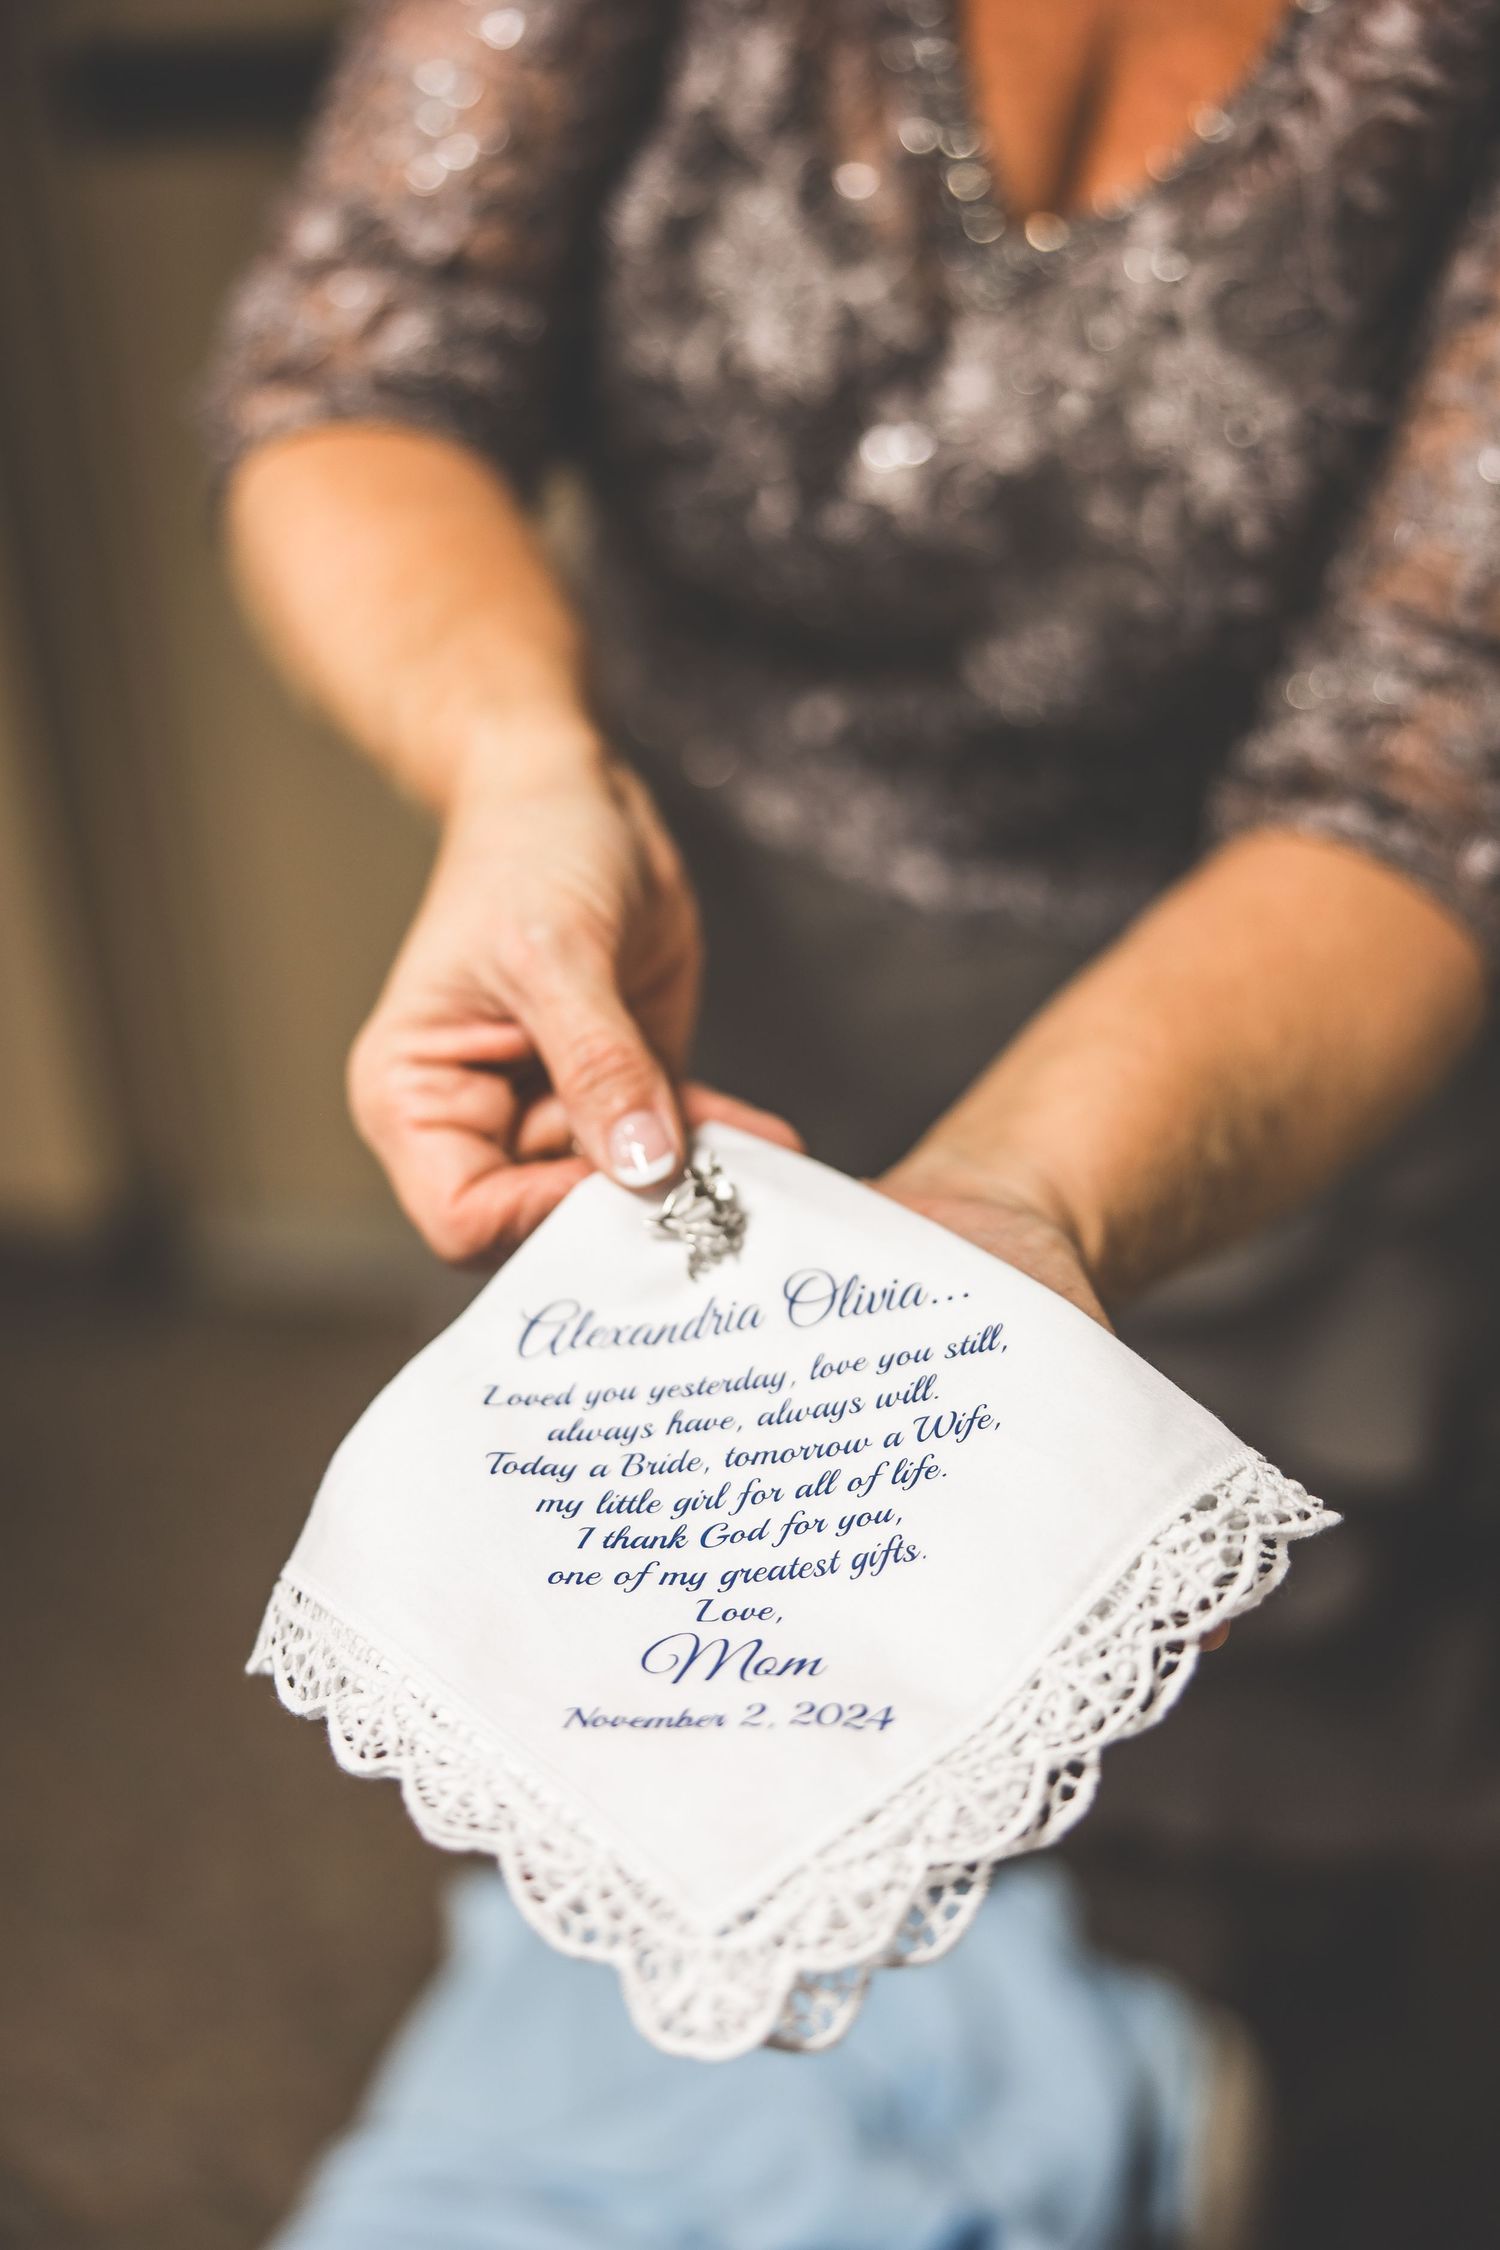 Alexandria Olivia...
Loved you yesterday, love you still,
always have, always will.
Today a Bride, tomorrow a Wife,
my little girl for all of life.
I thank God for you,
one of my greatest gifts.
Love,
Mom
November 2, 2024